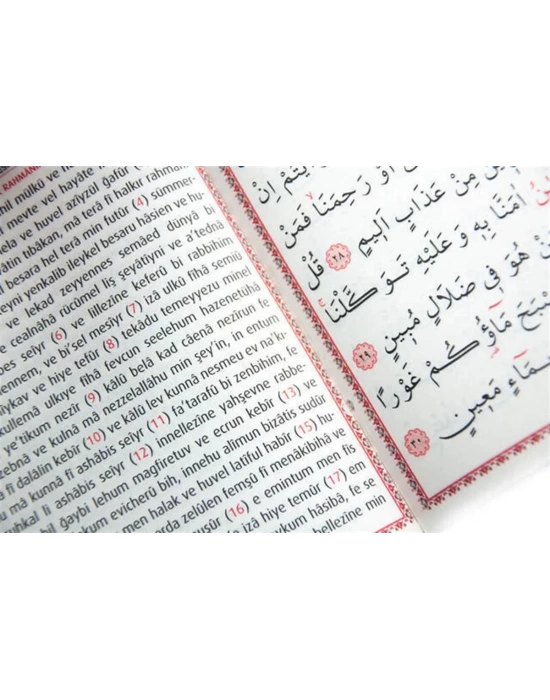 RAHMANİ
hil mülkü ve
meyte vel hayâte
ve huvel azîyzül gafûr
tıbâkan, mâ terâ fî halkır rahmân
besara hel terâ min futûr (4) sümmer-
yenkalib ileykel besaru hâsien ve hu-
ve lekad zeyyennes semâed dünyâ bi
ve cealnâhâ rücûmel liş şeyâtîyni ve a'tednâ
seîyr (6) ve lillezîne keferû bi rabbihim
ve bi'sel mesîyr (7) izâ ulkû fîhâ semiû
ve hiye tefûr (8) tekâdu temeyyezu minel
kullemâ ulkıye fîhâ fevcun seelehum hazenetühâ
ye'tikum nezîr (9) kâlû belâ kad câenâ nezîrun fe
ve kulnâ mâ nezzelallâhu min şey'in, in entum
fî dalâlin kebîr (10) ve kâlû lev kunnâ nesmeu ev na'k-
mâ kunnâ fî ashâbis seîyr (11) fa'tarafû bi zenbihim, fe
li ashâbis seîyr (12) innellezîne yahşevne rabbe-
bil ğaybi lehum mağfiretuv ve ecrun kebîr (13) ve
evicherû bih, innehu alîmun bizâtis sudûr
men halak ve huvel latîful habîr (15) hu-
zelûlen femşû fî menâkibihâ ve
(16) e emintum men fis
izâ hiye temûr (17) em
hâsibâ, fe se
min
اِنْ
اَوْ رَحِمَنَا فَمَنْ
مِنْ عَذَابٍ اَلِيمٍ ٢٨ قُلْ
اٰمَنَّا بِهِ وَعَلَيْهِ تَوَكَّلْنَا
هُوَ فِي ضَلَالٍ مُبِينٍ ٢٩
مَاؤُكُمْ غَوْرًا
مَعِينٍ ٣٠